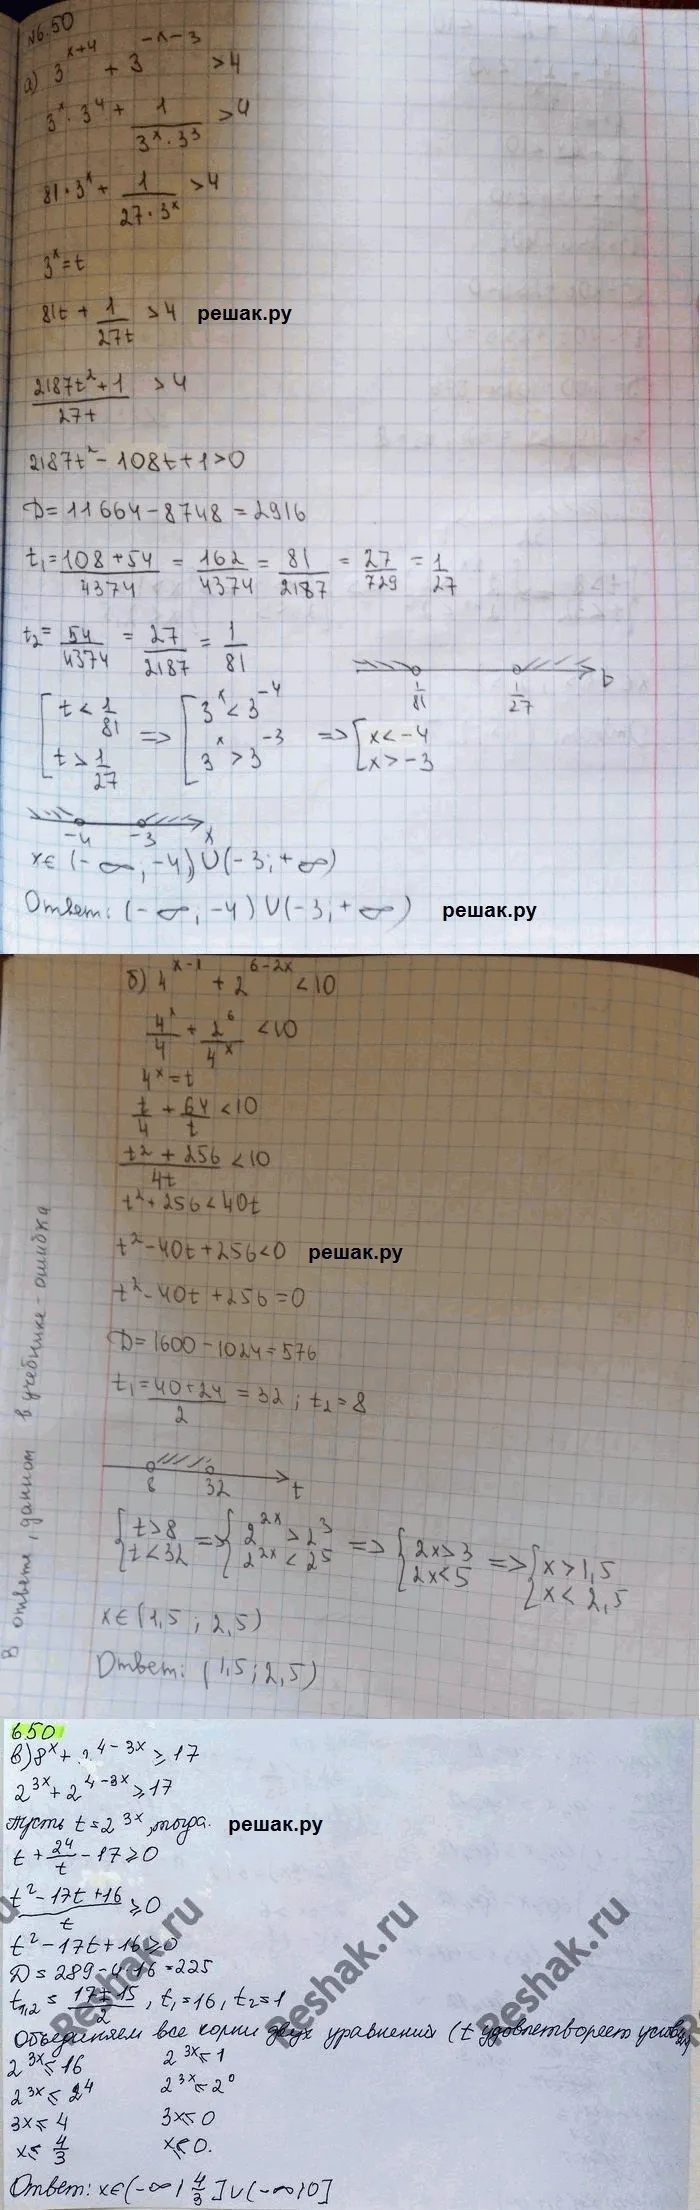 №6.50
а) 3^{x+4} + 3^{-x-3} > 4
3^x · 3^4 + 1/(3^x · 3^3) > 4
81 · 3^x + 1/(27 · 3^x) > 4
3^x = t
81t + 1/(27t) > 4 решак.ру
(2187t^2 + 1)/(27t) > 4
2187t^2 - 108t + 1 > 0
D = 11664 - 8748 = 2916
t_1 = (108 + 54)/4374 = 162/4374 = 81/2187 = 27/729 = 1/27
t_2 = 54/4374 = 27/2187 = 1/81
1/81 1/27 t
[ t < 1/81 => [ 3^x < 3^{-4} => [ x < -4
t > 1/27 3^x > 3^{-3} x > -3
-4 -3 x
x ∈ (-∞, -4) ∪ (-3; +∞)
Ответ: (-∞, -4) ∪ (-3; +∞) решак.ру
б) 4^{x-1} + 2^{6-2x} < 10
4^x/4 + 2^6/4^x < 10
4^x = t
t/4 + 64/t < 10
(t^2 + 256)/(4t) < 10
t^2 + 256 < 40t
t^2 - 40t + 256 < 0 решак.ру
t^2 - 40t + 256 = 0
D = 1600 - 1024 = 576
t_1 = (40 + 24)/2 = 32; t_2 = 8
8 32 t
{ t > 8 => { 2^{2x} > 2^3 => { 2x > 3 => { x > 1,5
t < 32 2^{2x} < 2^5 2x < 5 x < 2,5
x ∈ (1,5; 2,5)
Ответ: (1,5; 2,5)
В ответе, данном в учебнике - ошибка
650
в) 8^x + 2^{4-3x} ≥ 17
2^{3x} + 2^{4-3x} ≥ 17
Пусть t = 2^{3x}, тогда. решак.ру
t + 2^4/t - 17 ≥ 0
(t^2 - 17t + 16)/t ≥ 0
t^2 - 17t + 16 ≥ 0
D = 289 - 4·16 = 225
t_{1,2} = (17 ± 15)/2, t_1 = 16, t_2 = 1
Объединяем все корни двух уравнений (t удовлетворяет условию)
2^{3x} ≤ 16 2^{3x} ≤ 1
2^{3x} ≤ 2^4 2^{3x} ≤ 2^0
3x ≤ 4 3x ≤ 0
x ≤ 4/3 x ≤ 0.
Ответ: x ∈ (-∞; 4/3] ∪ (-∞; 0]
Reshak.ru
Reshak.ru
Reshak.ru